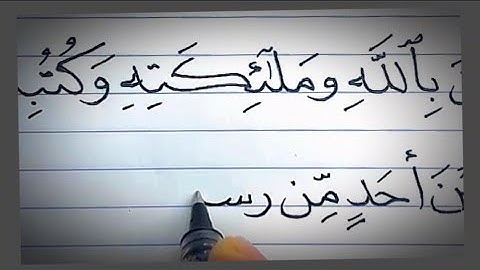 بِٱللَّهِ وَمَلَـٰٓئِكَتِهِ وَكُتُبِ
أَحَدٍ مِّن رس